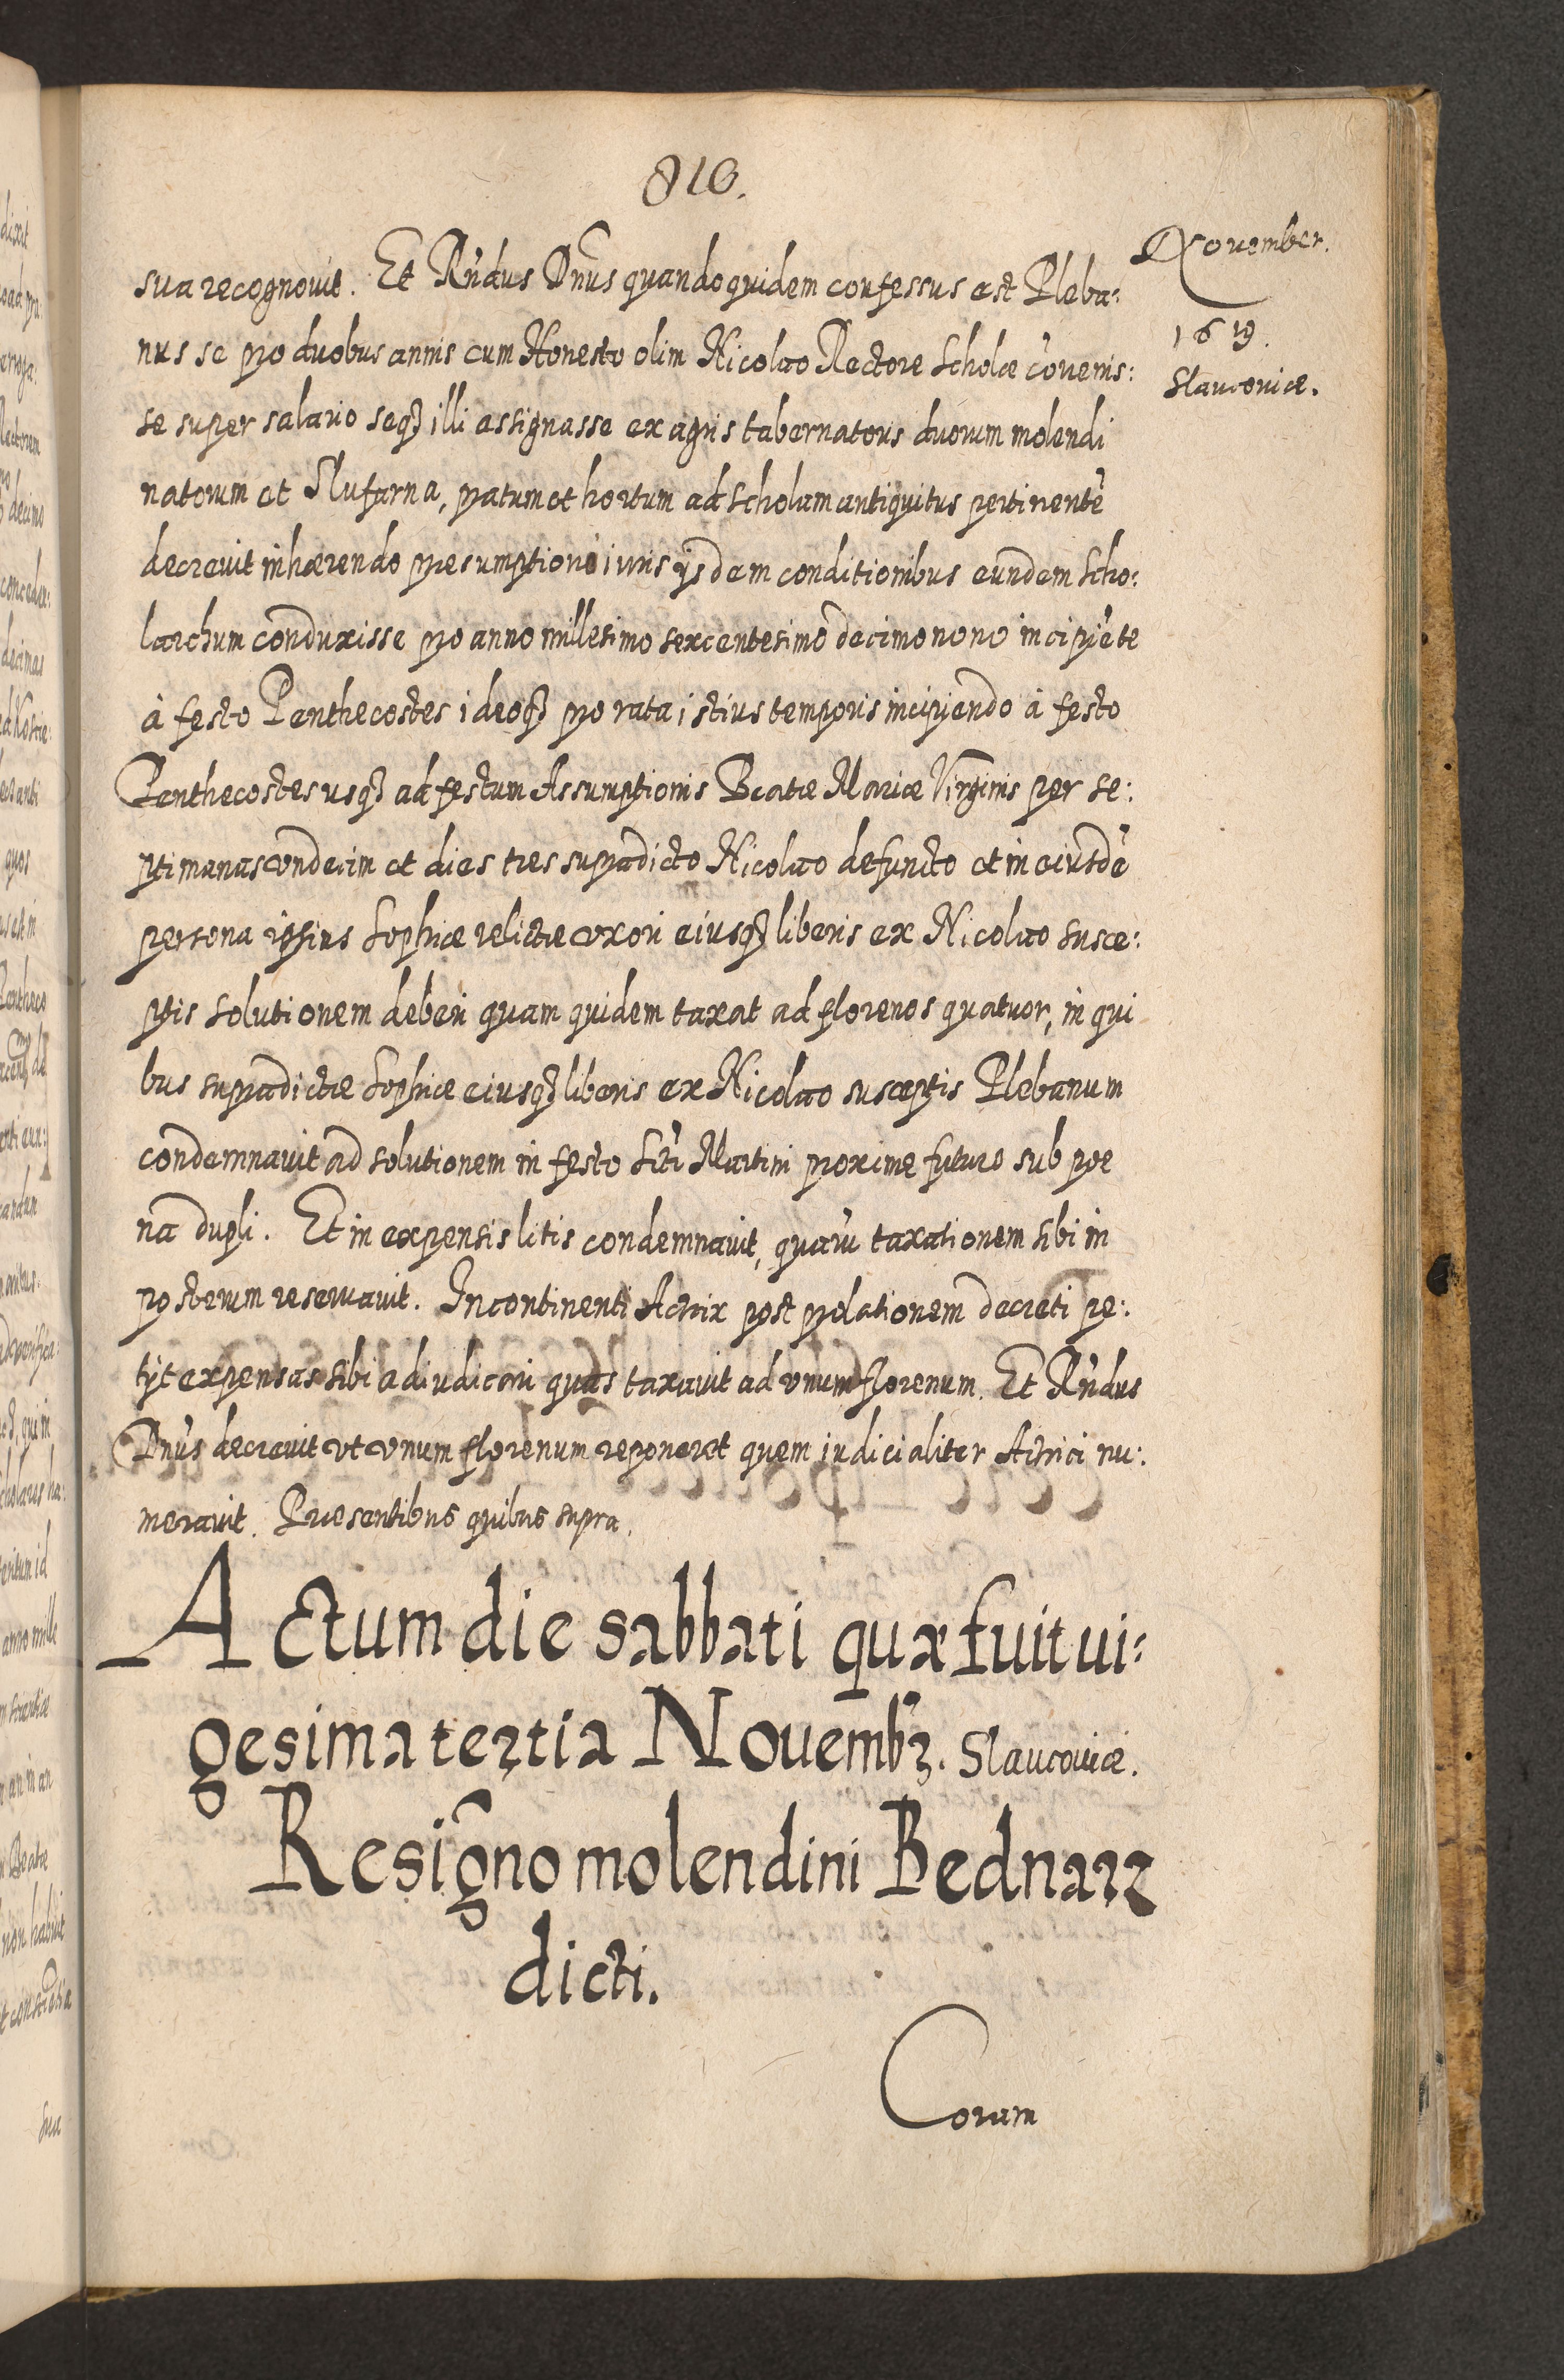 810.
November.
1619.
Slaucouiæ.
sua recognouit. Et R̃ndus Dñus quandoquidem confessus est Pleba:
nus se pro duobus annis cum Honesto olim Nicolao Rectore Scholæ cõuenis:
se super salario seqȝ illi assignasse ex agris tabernatoris duorum molendi
natorum et Slufarna, pratum et hortum ad Scholam antiquitus pertinentẽ
decreuit inhærendo præsumptioni iuris ijsdem conditionibus eundem Scho:
larchum conduxisse pro anno millesimo sexcentesimo decimo nono incipiẽte
à festo Penthecostes ideoqȝ pro rata istius temporis incipiendo à festo
Penthecostes usqȝ ad festum Assumptionis Beatæ Mariæ Virginis per se:
ptimanas vndecim et dies tres supradicto Nicolao defuncto et in eiusdẽ
persona ipsius Sophiæ relictæ vxori eiusqȝ liberis ex Nicolao susce:
ptis solutionem deberi quam quidem taxat ad florenos quatuor, in qui
bus supradictæ Sophiæ eiusqȝ liberis ex Nicolao susceptis Plebanum
condemnauit ad solutionem in festo Scti Martini proxime futuro sub poe
na dupli. Et in expensis litis condemnauit, quarũ taxationem sibi in
posterum reseruauit. Incontinenti Actrix post prolationem decreti pe:
tijt expensas sibi adiudicari quas taxauit ad vnum florenum. Et R̃ndus
Dñus decreuit vt vnum florenum reponeret quem iudicialiter Actrici nu:
merauit. Præsentibus quibus supra.
Actum die sabbati quæ fuit ui:
gesima tertia Nouembȝ. Slaucouiæ.
Resigño molendini Bednarz
dicti.
Coram